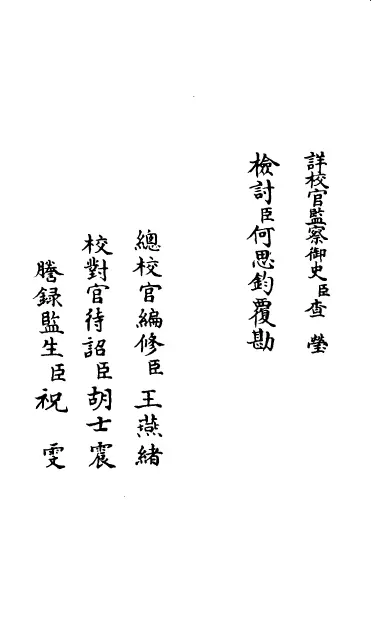 詳校官監察御史臣查瑩
檢討臣何思鈞覆勘
總校官編修臣王燕緒
校對官待詔臣胡士震
謄録監生臣祝雯